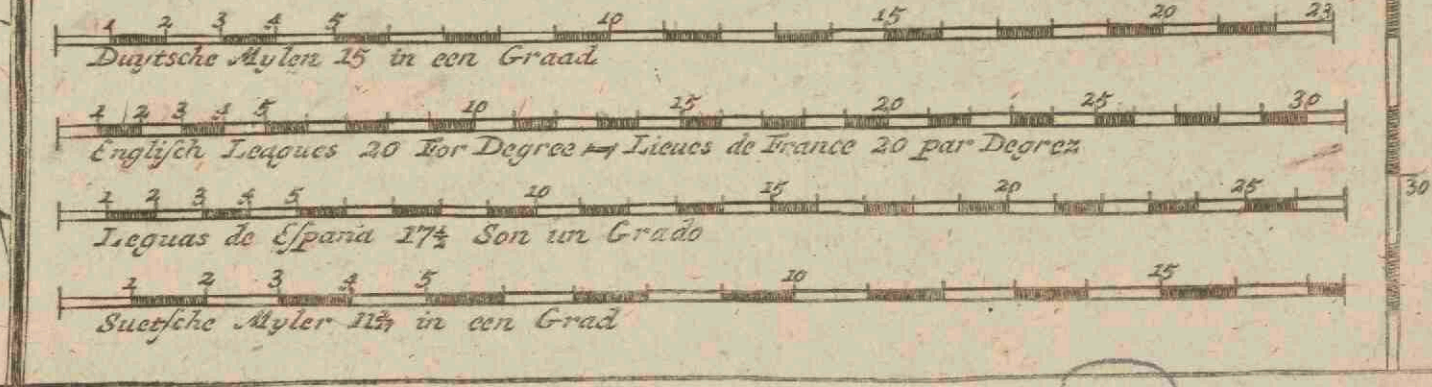 1 2 3 4 5 10 15 20 23
Duytsche Mylen 15 in een Graad
1 2 3 4 5 10 15 20 25 30
Englisch Leagues 20 For Degree Lieues de France 20 par Degrez
1 2 3 4 5 10 15 20 25
30
Leguas de Espania 17½ Son un Grado
1 2 3 4 5 10 15
Suetsche Myler in een Grad